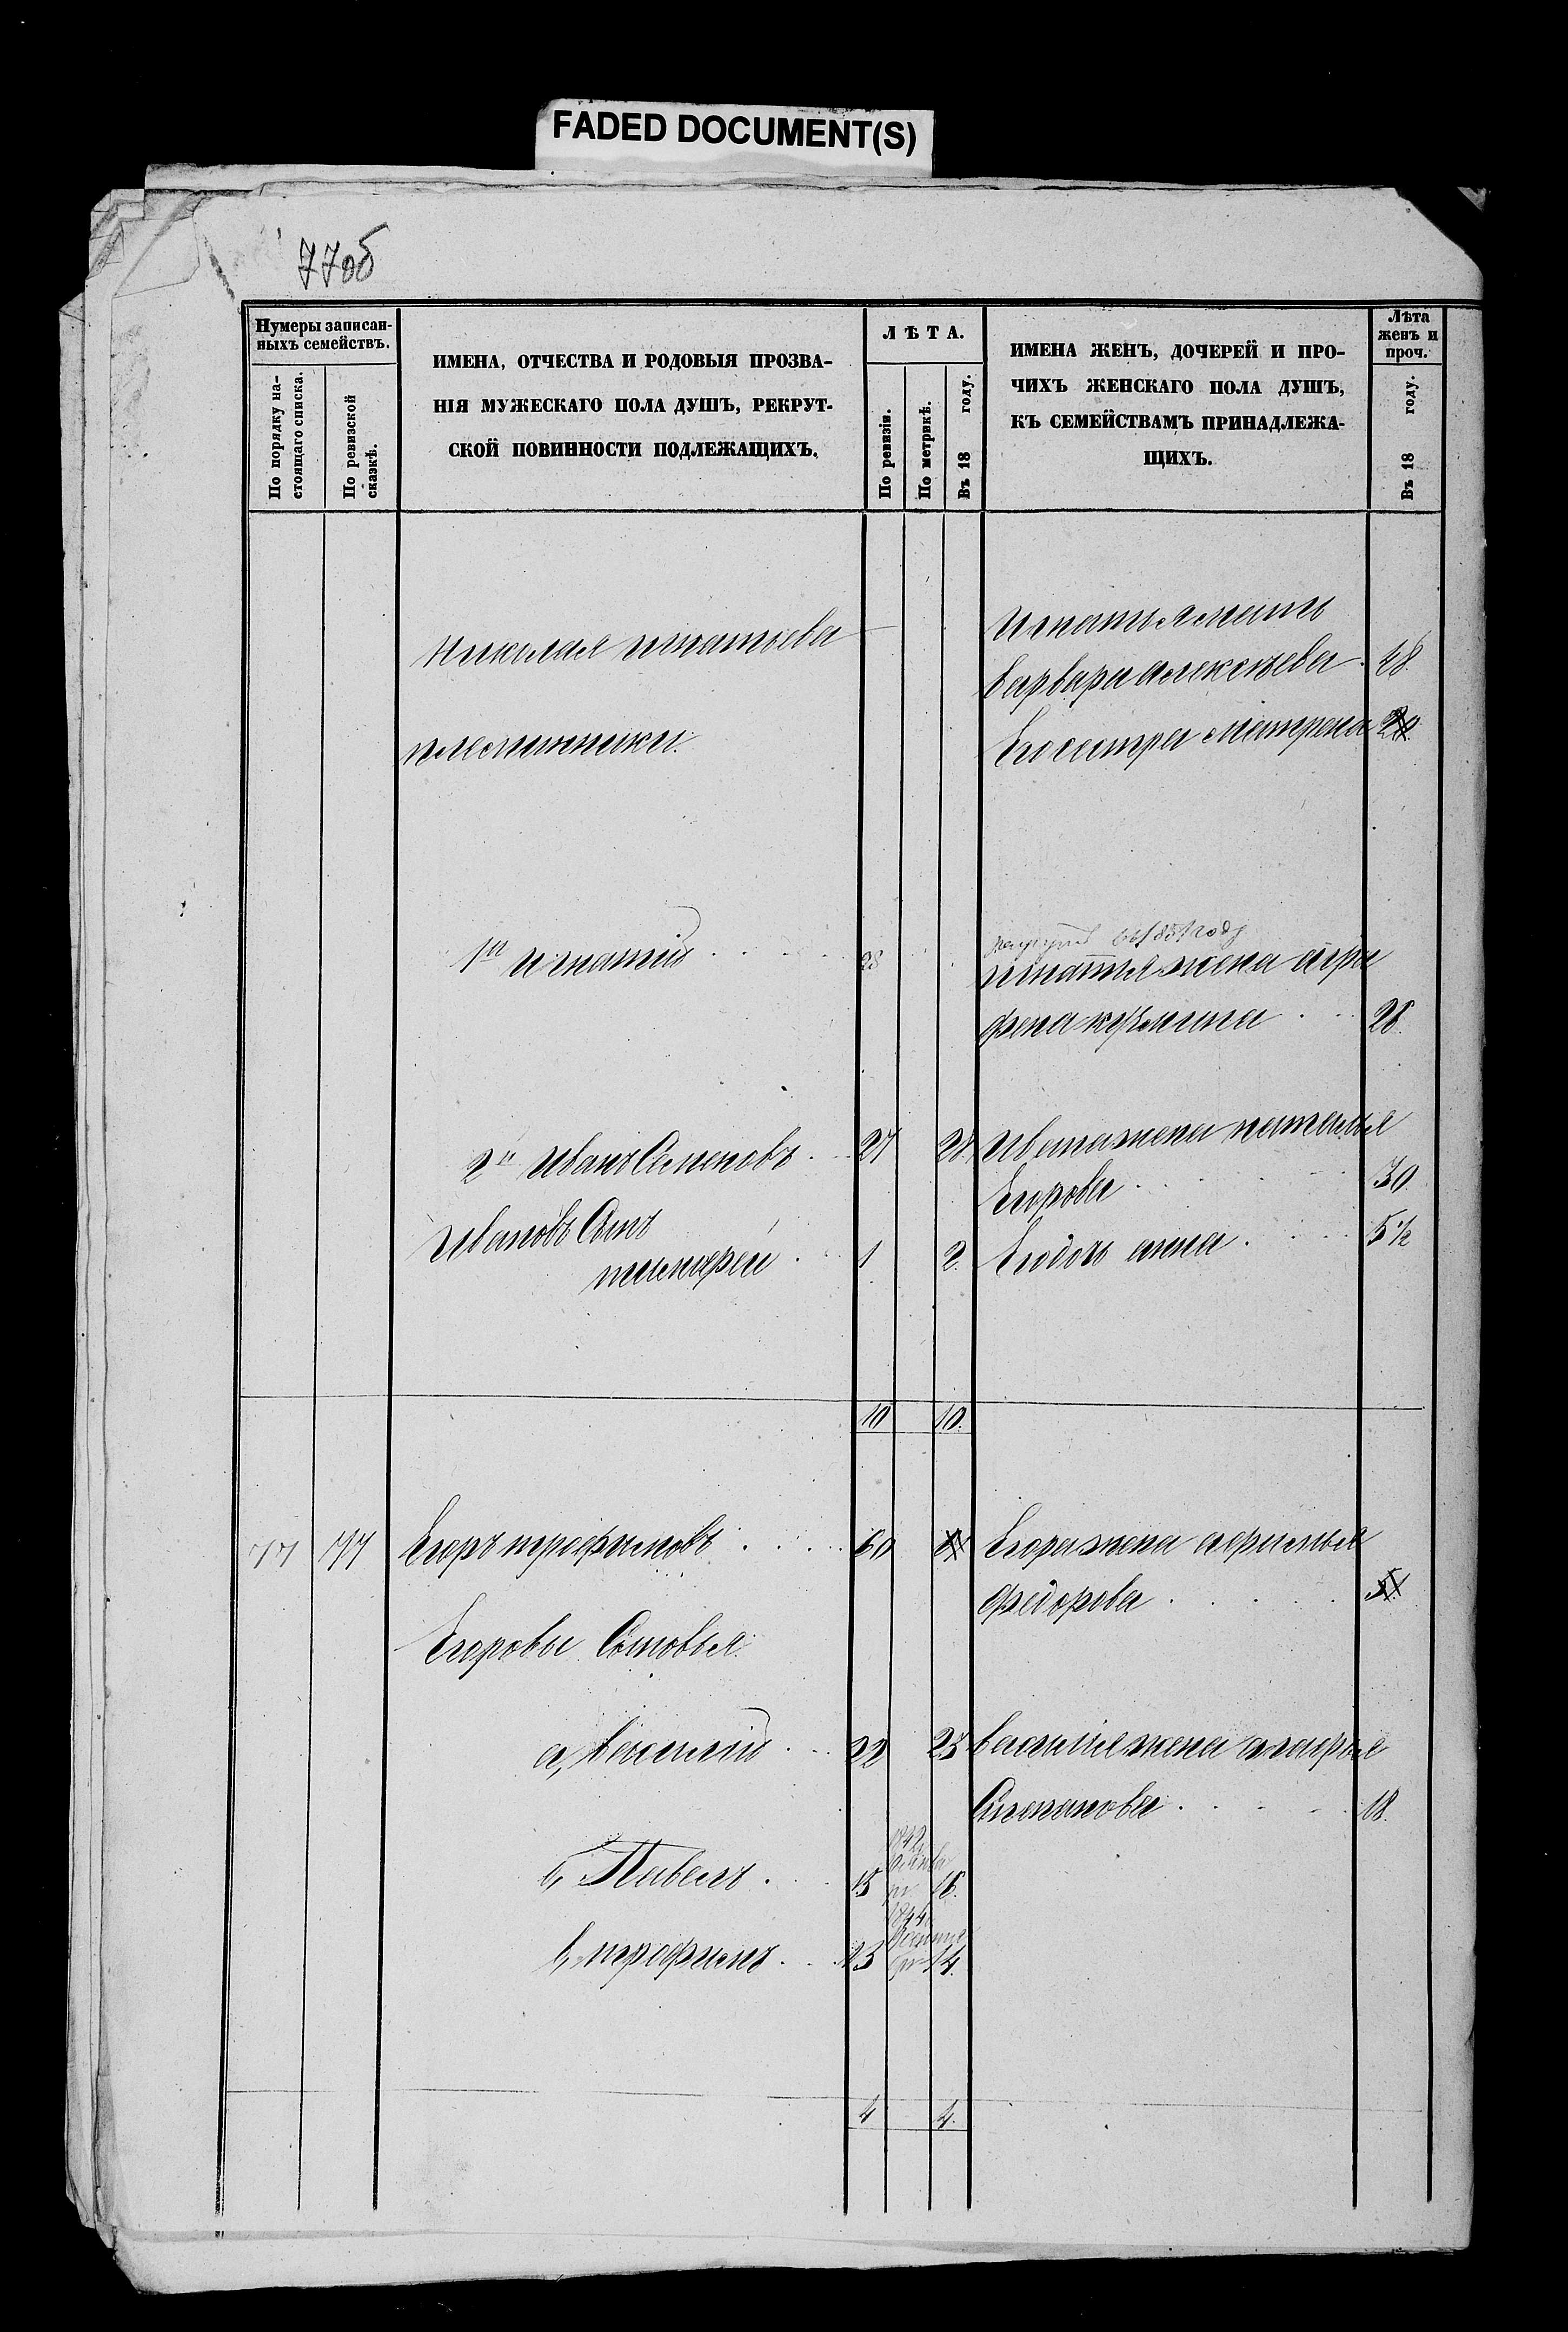 FADED DOCUMENT(S)
77об
Нумеры записан-
ныхъ семействъ.
По порядку на-
стоящаго списка.
По ревизской
сказкѣ.
ИМЕНА, ОТЧЕСТВА И РОДОВЫЯ ПРОЗВА-
НІЯ МУЖЕСКАГО ПОЛА ДУШЪ, РЕКРУТ-
СКОЙ ПОВИННОСТИ ПОДЛЕЖАЩИХЪ.
ЛѢТА.
По ревизіи.
По метрикѣ.
Въ 18 году.
ИМЕНА ЖЕНЪ, ДОЧЕРЕЙ И ПРО-
ЧИХЪ ЖЕНСКАГО ПОЛА ДУШЪ,
КЪ СЕМЕЙСТВАМЪ ПРИНАДЛЕЖА-
ЩИХЪ.
Лѣта
женъ и
проч.
Въ 18 году.
Игнатья мать
Николая игнатьева
варвара алексѣева 48.
племянники.
Его сестра матрена
1й игнатій 28
игнатья жена агра
фена кузмина 28.
2й Иванъ Семеновъ 27 28 Ивана жена наталья
Егорова 30.
Ивановъ Сынъ
1 2. Его дочь анна 5 1/2
10 10.
77 77 Егоръ трофимовъ 60 Егора жена афимья
Федорова
Егоровы Сыновья
а, василій 22 23 василья жена агафья
Степанова 18.
б, Павелъ 15 16.
1844
в, трофимъ 13 14.
4 4.